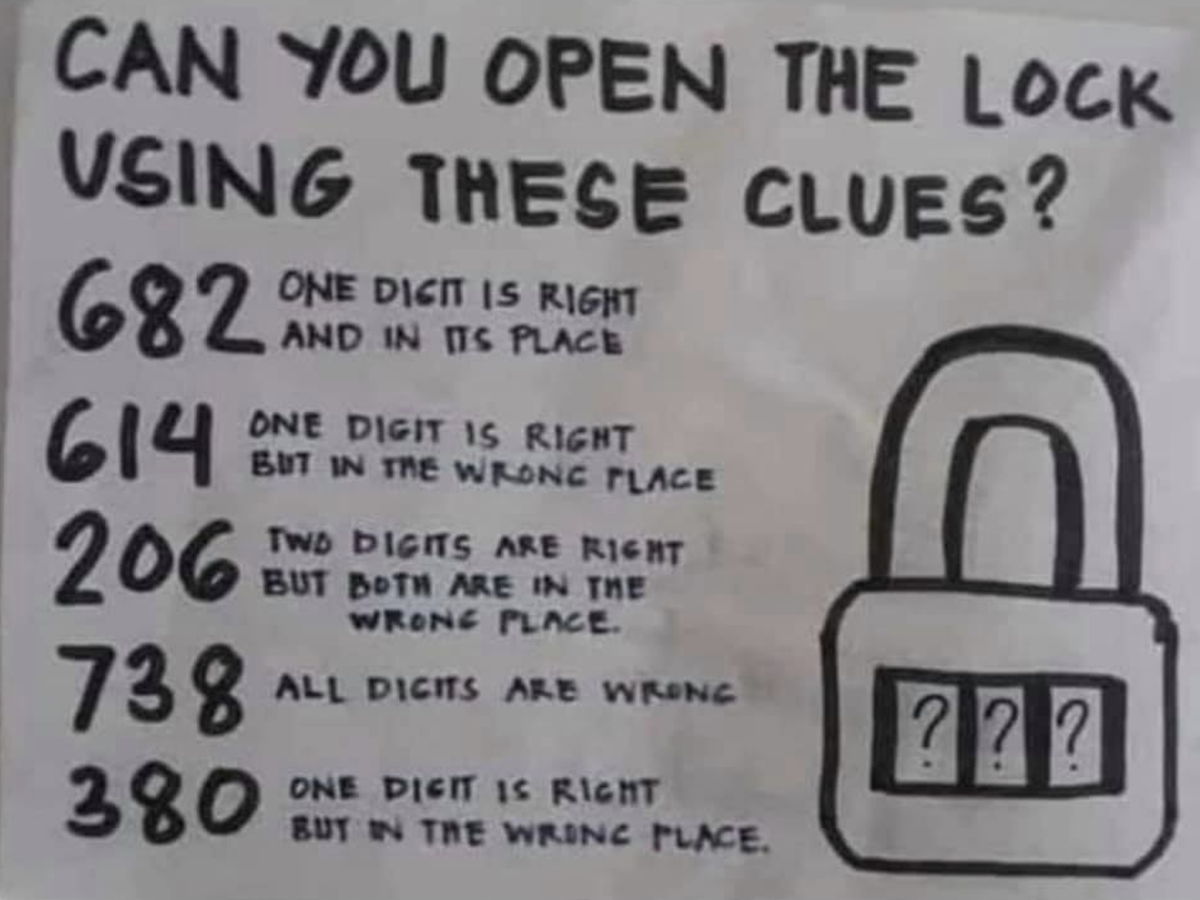 CAN YOU OPEN THE LOCK
USING THESE CLUES?
682 ONE DIGIT IS RIGHT
AND IN ITS PLACE
614 ONE DIGIT IS RIGHT
BUT IN THE WRONG PLACE
206 TWO DIGITS ARE RIGHT
BUT BOTH ARE IN THE
WRONG PLACE.
738 ALL DIGITS ARE WRONG
380 ONE DIGIT IS RIGHT
BUT IN THE WRONG PLACE.
? ? ?